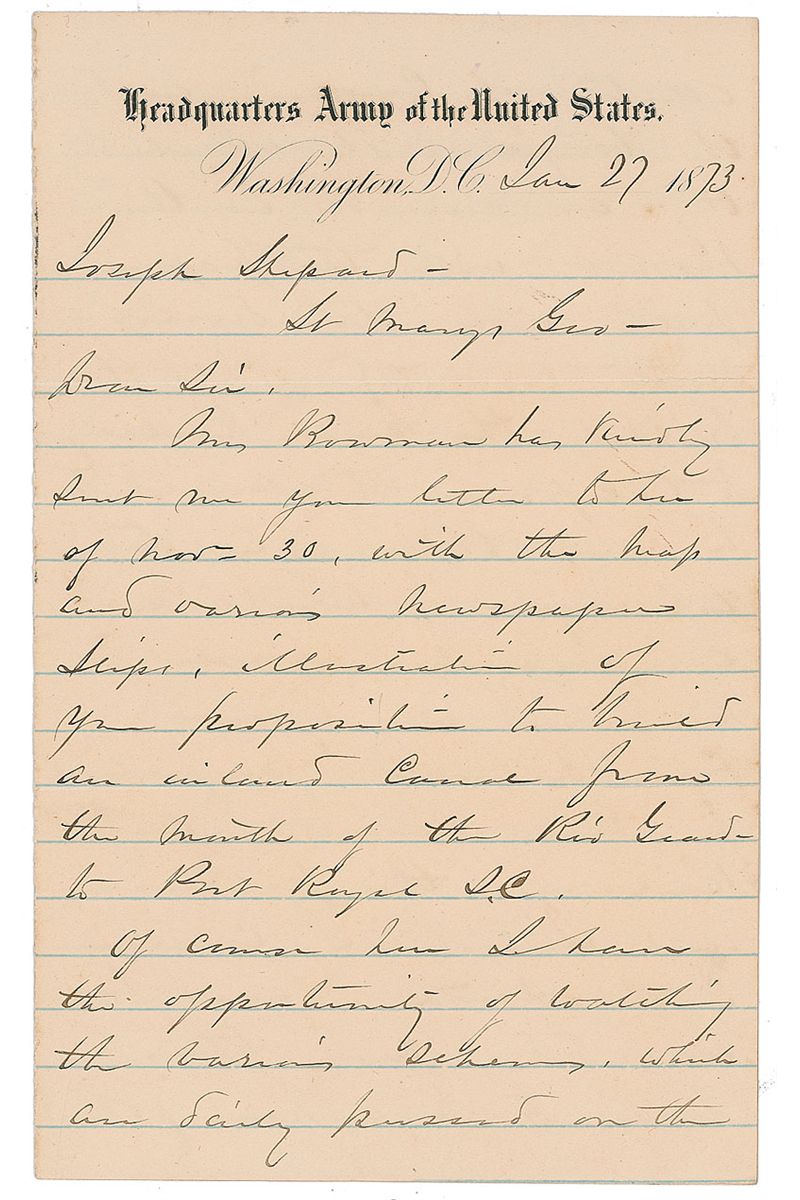 Headquarters Army of the United States.
Washington, D.C. Jan 27 1873.
Joseph Shepard –
St Marys Geo –
Dear Sir,
Mrs Bowman has kindly
sent me your letter to her
of Nov – 30, with the map
and various newspaper
slips, illustration of
your proposition to build
an inland Canal from
the Mouth of the Rio Grand –
to Port Royal S.C.
Of course here I have
the opportunity of watching
the various schemes, which
are daily pressed on the